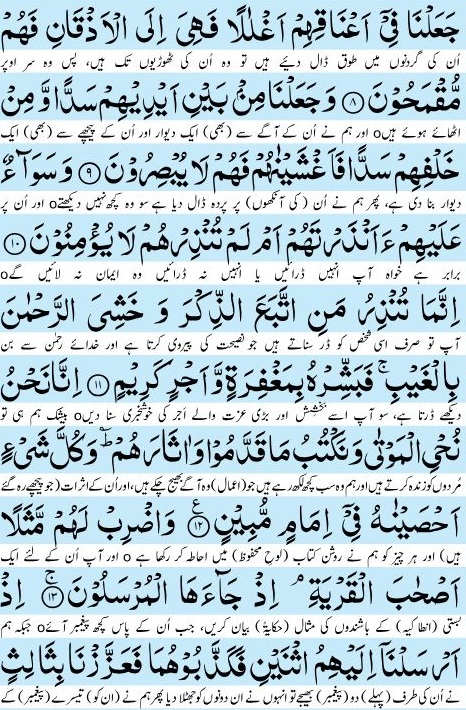 جَعَلْنَا فِيْۤ اَعْنَاقِهِمْ اَغْلٰلًا فَهِيَ اِلَى الْاَذْقَانِ فَهُمْ
اُن کی گردنوں میں طوق ڈال دیئے ہیں تو وہ اُن کی ٹھوڑیوں تک ہیں، پس وہ سر اوپر
مُّقْمَحُوْنَ ﴿۸﴾ وَ جَعَلْنَا مِنْۢ بَيْنِ اَيْدِيْهِمْ سَدًّا وَّ مِنْ
اٹھائے ہوئے ہیںo اور ہم نے اُن کے آگے سے (بھی) ایک دیوار اور اُن کے پیچھے سے (بھی) ایک
خَلْفِهِمْ سَدًّا فَاَغْشَيْنٰهُمْ فَهُمْ لَا يُبْصِرُوْنَ ﴿۹﴾ وَ سَوَآءٌ
دیوار بنا دی ہے، پھر ہم نے اُن (کی آنکھوں) پر پردہ ڈال دیا ہے سو وہ کچھ نہیں دیکھتےo اور اُن پر
عَلَيْهِمْ ءَاَنْذَرْتَهُمْ اَمْ لَمْ تُنْذِرْهُمْ لَا يُؤْمِنُوْنَ ﴿۱۰﴾
برابر ہے خواہ آپ انہیں ڈرائیں یا انہیں نہ ڈرائیں وہ ایمان نہ لائیں گےo
اِنَّمَا تُنْذِرُ مَنِ اتَّبَعَ الذِّكْرَ وَ خَشِيَ الرَّحْمٰنَ
آپ تو صرف اسی شخص کو ڈر سناتے ہیں جو نصیحت کی پیروی کرتا ہے اور خدائے رحمٰن سے بن
بِالْغَيْبِ ۚ فَبَشِّرْهُ بِمَغْفِرَةٍ وَّ اَجْرٍ كَرِيْمٍ ﴿۱۱﴾ اِنَّا نَحْنُ
دیکھے ڈرتا ہے، سو آپ اسے بخشش اور بڑی عزت والے اَجر کی خوشخبری سنا دیںo بیشک ہم ہی تو
نُحْيِ الْمَوْتٰى وَ نَكْتُبُ مَا قَدَّمُوْا وَ اٰثَارَهُمْ ؕ وَ كُلَّ شَيْءٍ
مُردوں کو زندہ کرتے ہیں اور ہم وہ سب کچھ لکھ رہے ہیں جو (اعمال) وہ آگے بھیج چکے ہیں، اور اُن کے اثرات (جو پیچھے رہ گئے
اَحْصَيْنٰهُ فِيْۤ اِمَامٍ مُّبِيْنٍ ﴿۱۲﴾ وَ اضْرِبْ لَهُمْ مَّثَلًا
ہیں) اور ہر چیز کو ہم نے روشن کتاب (لوحِ محفوظ) میں احاطہ کر رکھا ہے o اور آپ اُن کے لئے ایک
اَصْحٰبَ الْقَرْيَةِ ۘ اِذْ جَآءَهَا الْمُرْسَلُوْنَ ﴿۱۳﴾ ۚ اِذْ
بستی (انطاکیہ) کے باشندوں کی مثال (حکایۃً) بیان کریں، جب اُن کے پاس کچھ پیغمبر آئےo جبکہ ہم
اَرْسَلْنَاۤ اِلَيْهِمُ اثْنَيْنِ فَكَذَّبُوْهُمَا فَعَزَّزْنَا بِثَالِثٍ
نے اُن کی طرف (پہلے) دو (پیغمبر) بھیجے تو انہوں نے ان دونوں کو جھٹلا دیا پھر ہم نے (ان کو) تیسرے (پیغمبر) کے